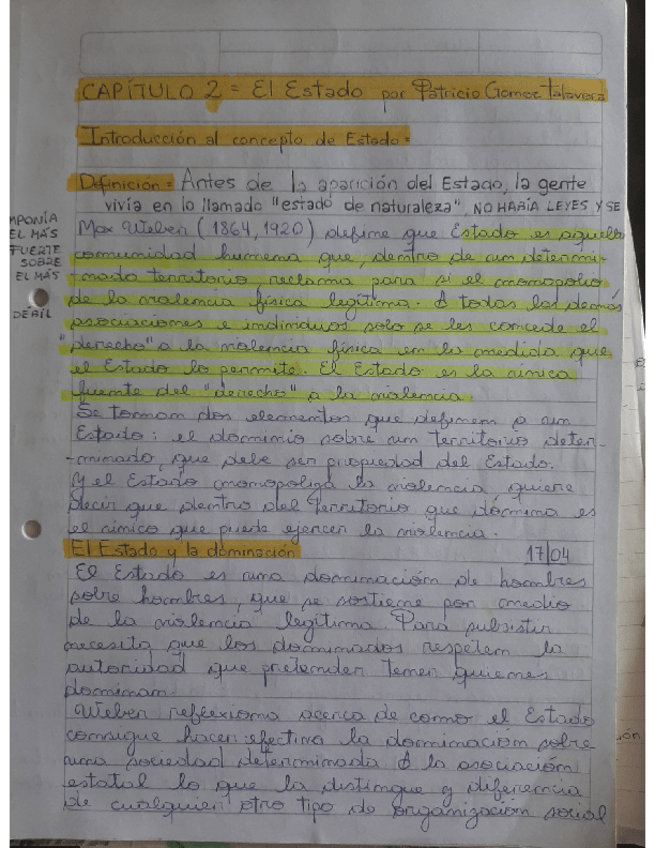 CAPÍTULO 2 = El Estado por Patricio Gomez Talavera
Introducción al concepto de Estado =
Definición = Antes de la aparición del Estado, la gente
vivía en lo llamado "estado de naturaleza", NO HABÍA LEYES Y SE
MPONÍA
EL MÁS
FUERTE
SOBRE
EL MÁS
DÉBIL
Max Weber (1864, 1920) define que Estado es aquella
comunidad humana que, dentro de un determi-
-nado territorio reclama para si el monopolio
de la violencia física legítima. A todas las demás
asociaciones e individuos solo se les concede el
"derecho" a la violencia física en la medida que
el Estado lo permite. El Estado es la única
fuente del "derecho" a la violencia.
Se toman dos elementos que definen a un
Estado: el dominio sobre un territorio deter-
-minado, que debe ser propiedad del Estado.
Y el Estado monopoliza la violencia, quiere
decir que dentro del territorio que domina es
el único que puede ejercer la violencia.
El Estado y la dominación 17/04
El Estado es una dominación de hombres
sobre hombres, que se sostiene por medio
de la violencia legítima. Para subsistir
necesita que los dominados respeten la
autoridad que pretenden tener quienes
dominan.
Weber reflexiona acerca de como el Estado
consigue hacer efectiva la dominación sobre
una sociedad determinada. A la asociación
estatal lo que la distingue y diferencia
de cualquier otro tipo de organización social